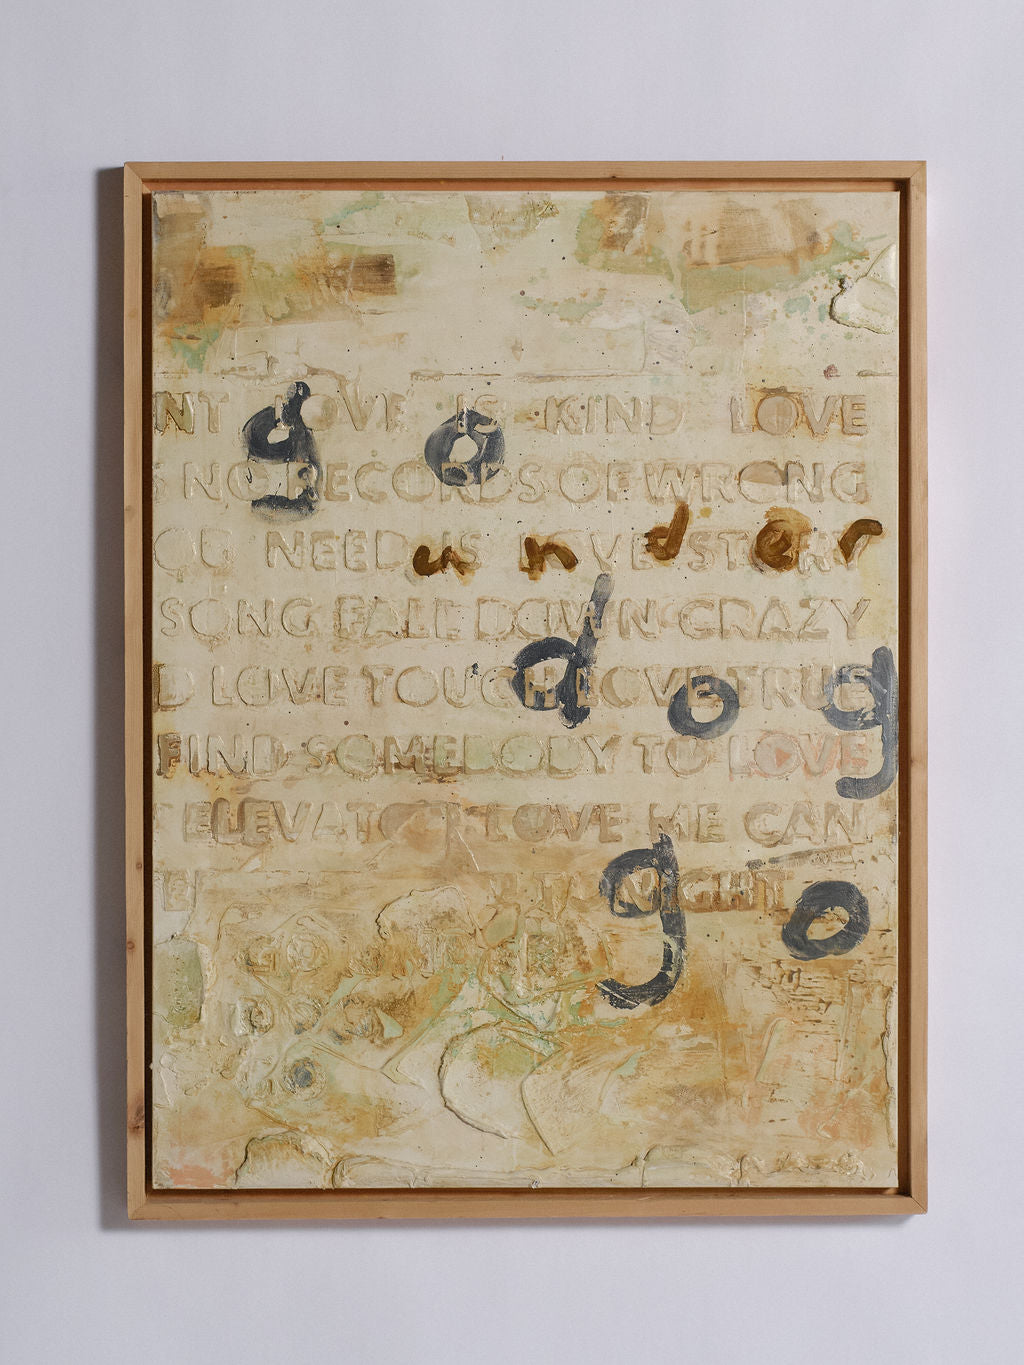 NT LOVE IS KIND LOVE
go
S NO RECORDS OF WRONG
NEED IS LOVE STORY
under
SONG FALL DOWN CRAZY
D LOVE TOUCH LOVE TRUE
dog
FIND SOMEBODY TO LOVE
ELEVATOR LOVE ME CAN
TONIGHT
go